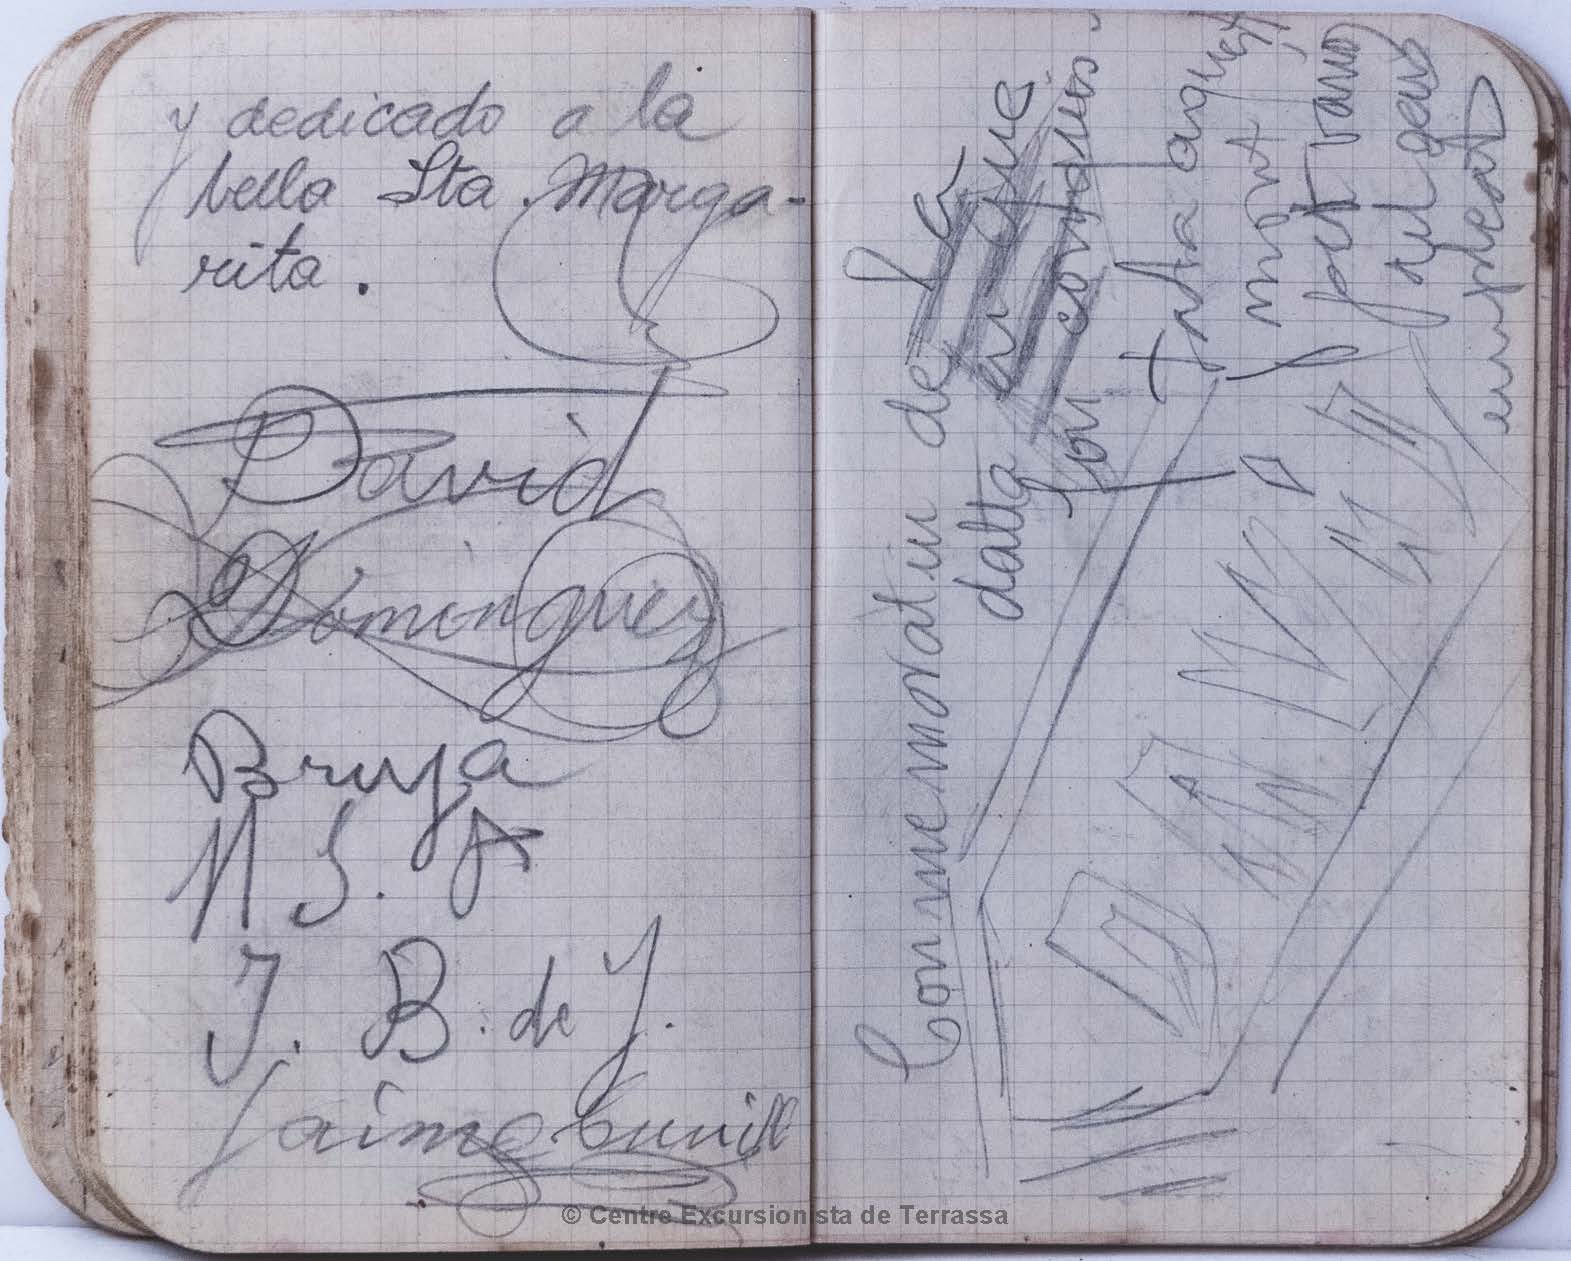 y dedicado a la
bella Sta Marga-
rita.
David
Dominguez
Bruja
N S. A
J. B. de J.
Jaime Cunill
Conmemoratiu de la
datta en que
fou
Entra aquest
mont
per
del gens
empleat
© Centre Excursionista de Terrassa